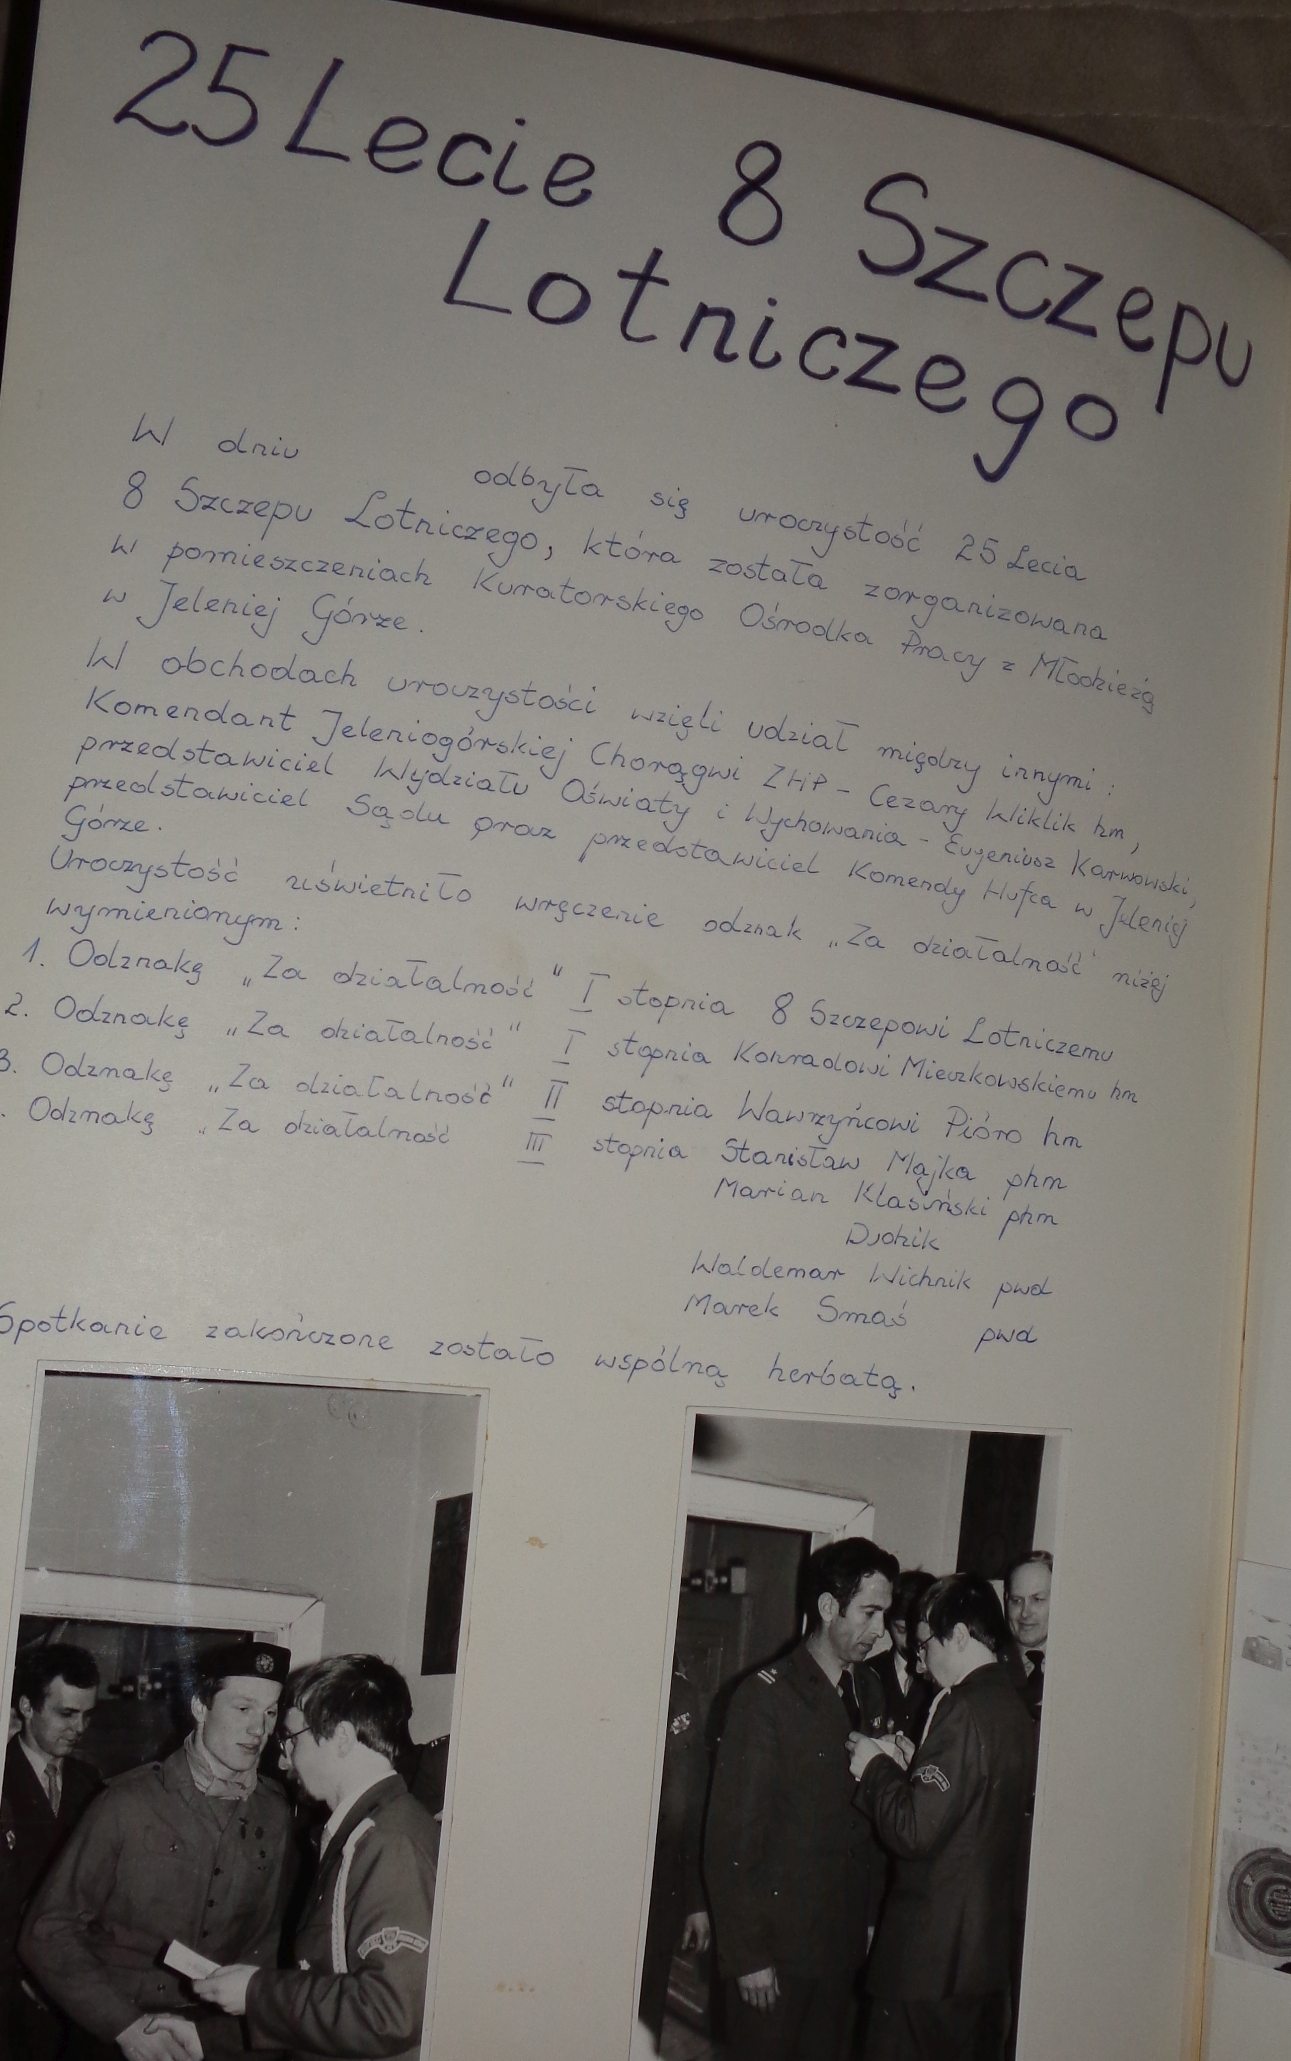 25 Lecie 8 Szczepu
Lotniczego
W dniu odbyła się uroczystość 25 Lecia
8 Szczepu Lotniczego, która została zorganizowana
w pomieszczeniach Kuratorskiego Ośrodka Pracy z Młodzieżą
w Jeleniej Górze.
W obchodach uroczystości wzięli udział między innymi:
Komendant Jeleniogórskiej Chorągwi ZHP - Cezary Wiklik hm,
przedstawiciel Wydziału Oświaty i Wychowania - Eugeniusz Karwowski,
przedstawiciel Sądu oraz przedstawiciel Komendy Hufca w Jeleniej
Górze.
Uroczystość uświetniło wręczenie odznak „Za działalność" niżej
wymienionym:
1. Odznakę „Za działalność" I stopnia 8 Szczepowi Lotniczemu
2. Odznakę „Za działalność" I stopnia Konradowi Mieczkowskiemu hm
3. Odznakę „Za działalność" II stopnia Wawrzyńcowi Pióro hm
. Odznakę „Za działalność III stopnia Stanisław Majka phm
Marian Klasiński phm
Dudzik
Waldemar Wichnik pwd
Marek Smaś pwd
Spotkanie zakończone zostało wspólną herbatą.